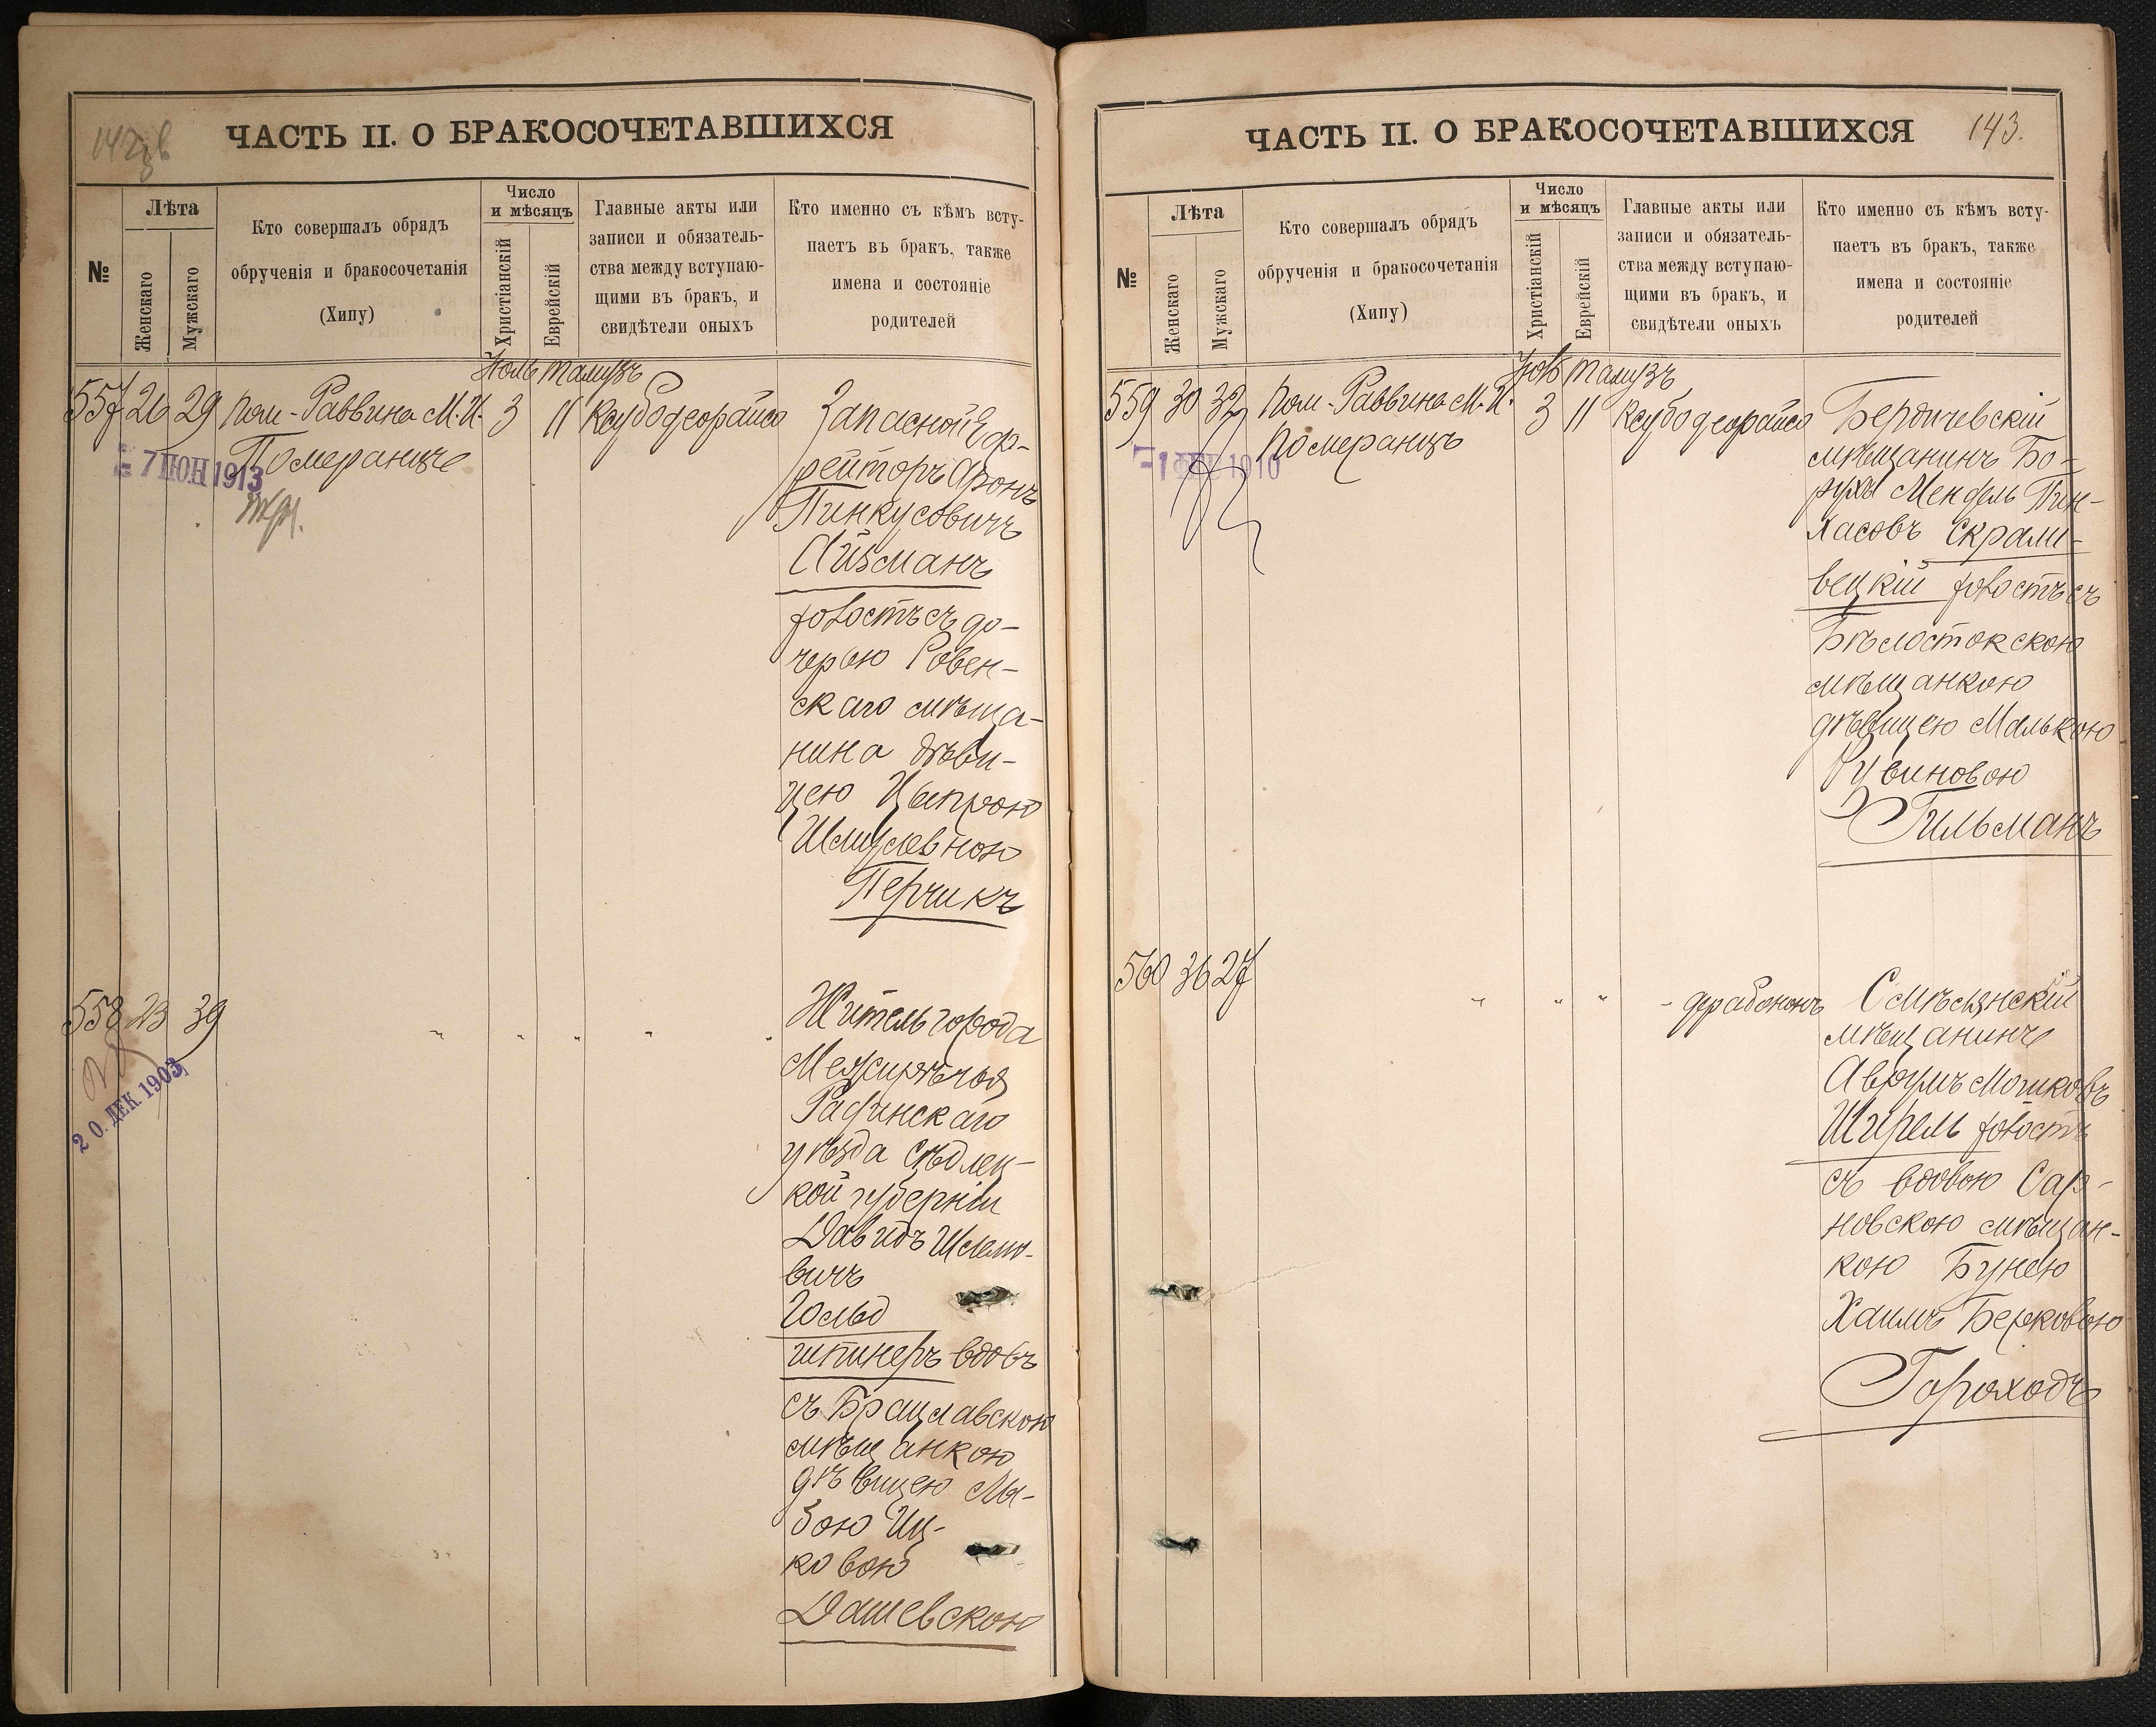 ЧАСТЬ II. О БРАКОСОЧЕТАВШИХСЯ
№
Лѣта
Женскаго
Мужскаго
Кто совершалъ обрядъ
обрученія и бракосочетанія
(Хипу)
Число
и мѣсяцъ
Христіанскій
Еврейскій
Главные акты или
записи и обязатель-
ства между вступаю-
щими въ бракъ, и
свидѣтели оныхъ
Кто именно съ кѣмъ всту-
паетъ въ бракъ, также
имена и состояніе
родителей
Іюль Тамузъ
557 26 29 Пом-Раввина М. И. 3 11 Ксубо деорайсо
Померанцъ
7 ІЮН 1913
Запасной Еф-
рейторъ Аронъ
Пинкусовичъ
Айзманъ
холостъ съ до-
черью Ровен-
скаго мѣща-
нина дѣви-
цею Ципрою
Шмулевною
Перчикъ
558 23 39 " " " " "
20. ДЕК. 1903
Житель города
Межирѣчья
Радинскаго
уѣзда Сѣдлец-
кой губерніи
Давидъ Шлемо-
вичъ
Гольд
шпинеръ вдовъ
съ Брацлавскою
мѣщанкою
дѣвицею
Иц-
ковою
Дашевскою
ЧАСТЬ II. О БРАКОСОЧЕТАВШИХСЯ 143.
№
Лѣта
Женскаго
Мужскаго
Кто совершалъ обрядъ
обрученія и бракосочетанія
(Хипу)
Число
и мѣсяцъ
Христіанскій
Еврейскій
Главные акты или
записи и обязатель-
ства между вступаю-
щими въ бракъ, и
свидѣтели оныхъ
Кто именно съ кѣмъ всту-
паетъ въ бракъ, также
имена и состояніе
родителей
Тамузъ
559 30 32 Пом-Раввина М. И. 3 11 Ксубо деорайсо
Померанцъ
1910
Бердичевскій
мѣщанинъ Бо-
рухъ Мендель Пин-
хасовъ Скрами-
вецкій холостъ съ
Бѣлостокскою
мѣщанкою
дѣвицею Малькою
Рувиновою
Гильманъ
560 36 27 " " " - драбононъ
Смѣлянскій
мѣщанинъ
Аврумъ Мошковъ
Шпрель холостъ
съ вдовою Сар-
новскою мѣщан-
кою Бунею
Хаимъ Берковою
Гороходъ